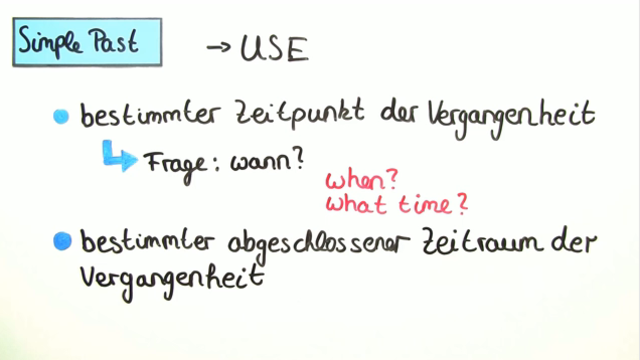 Simple Past → USE
bestimmter Zeitpunkt der Vergangenheit
Frage: wann?
when?
what time?
bestimmter abgeschlossener Zeitraum der
Vergangenheit